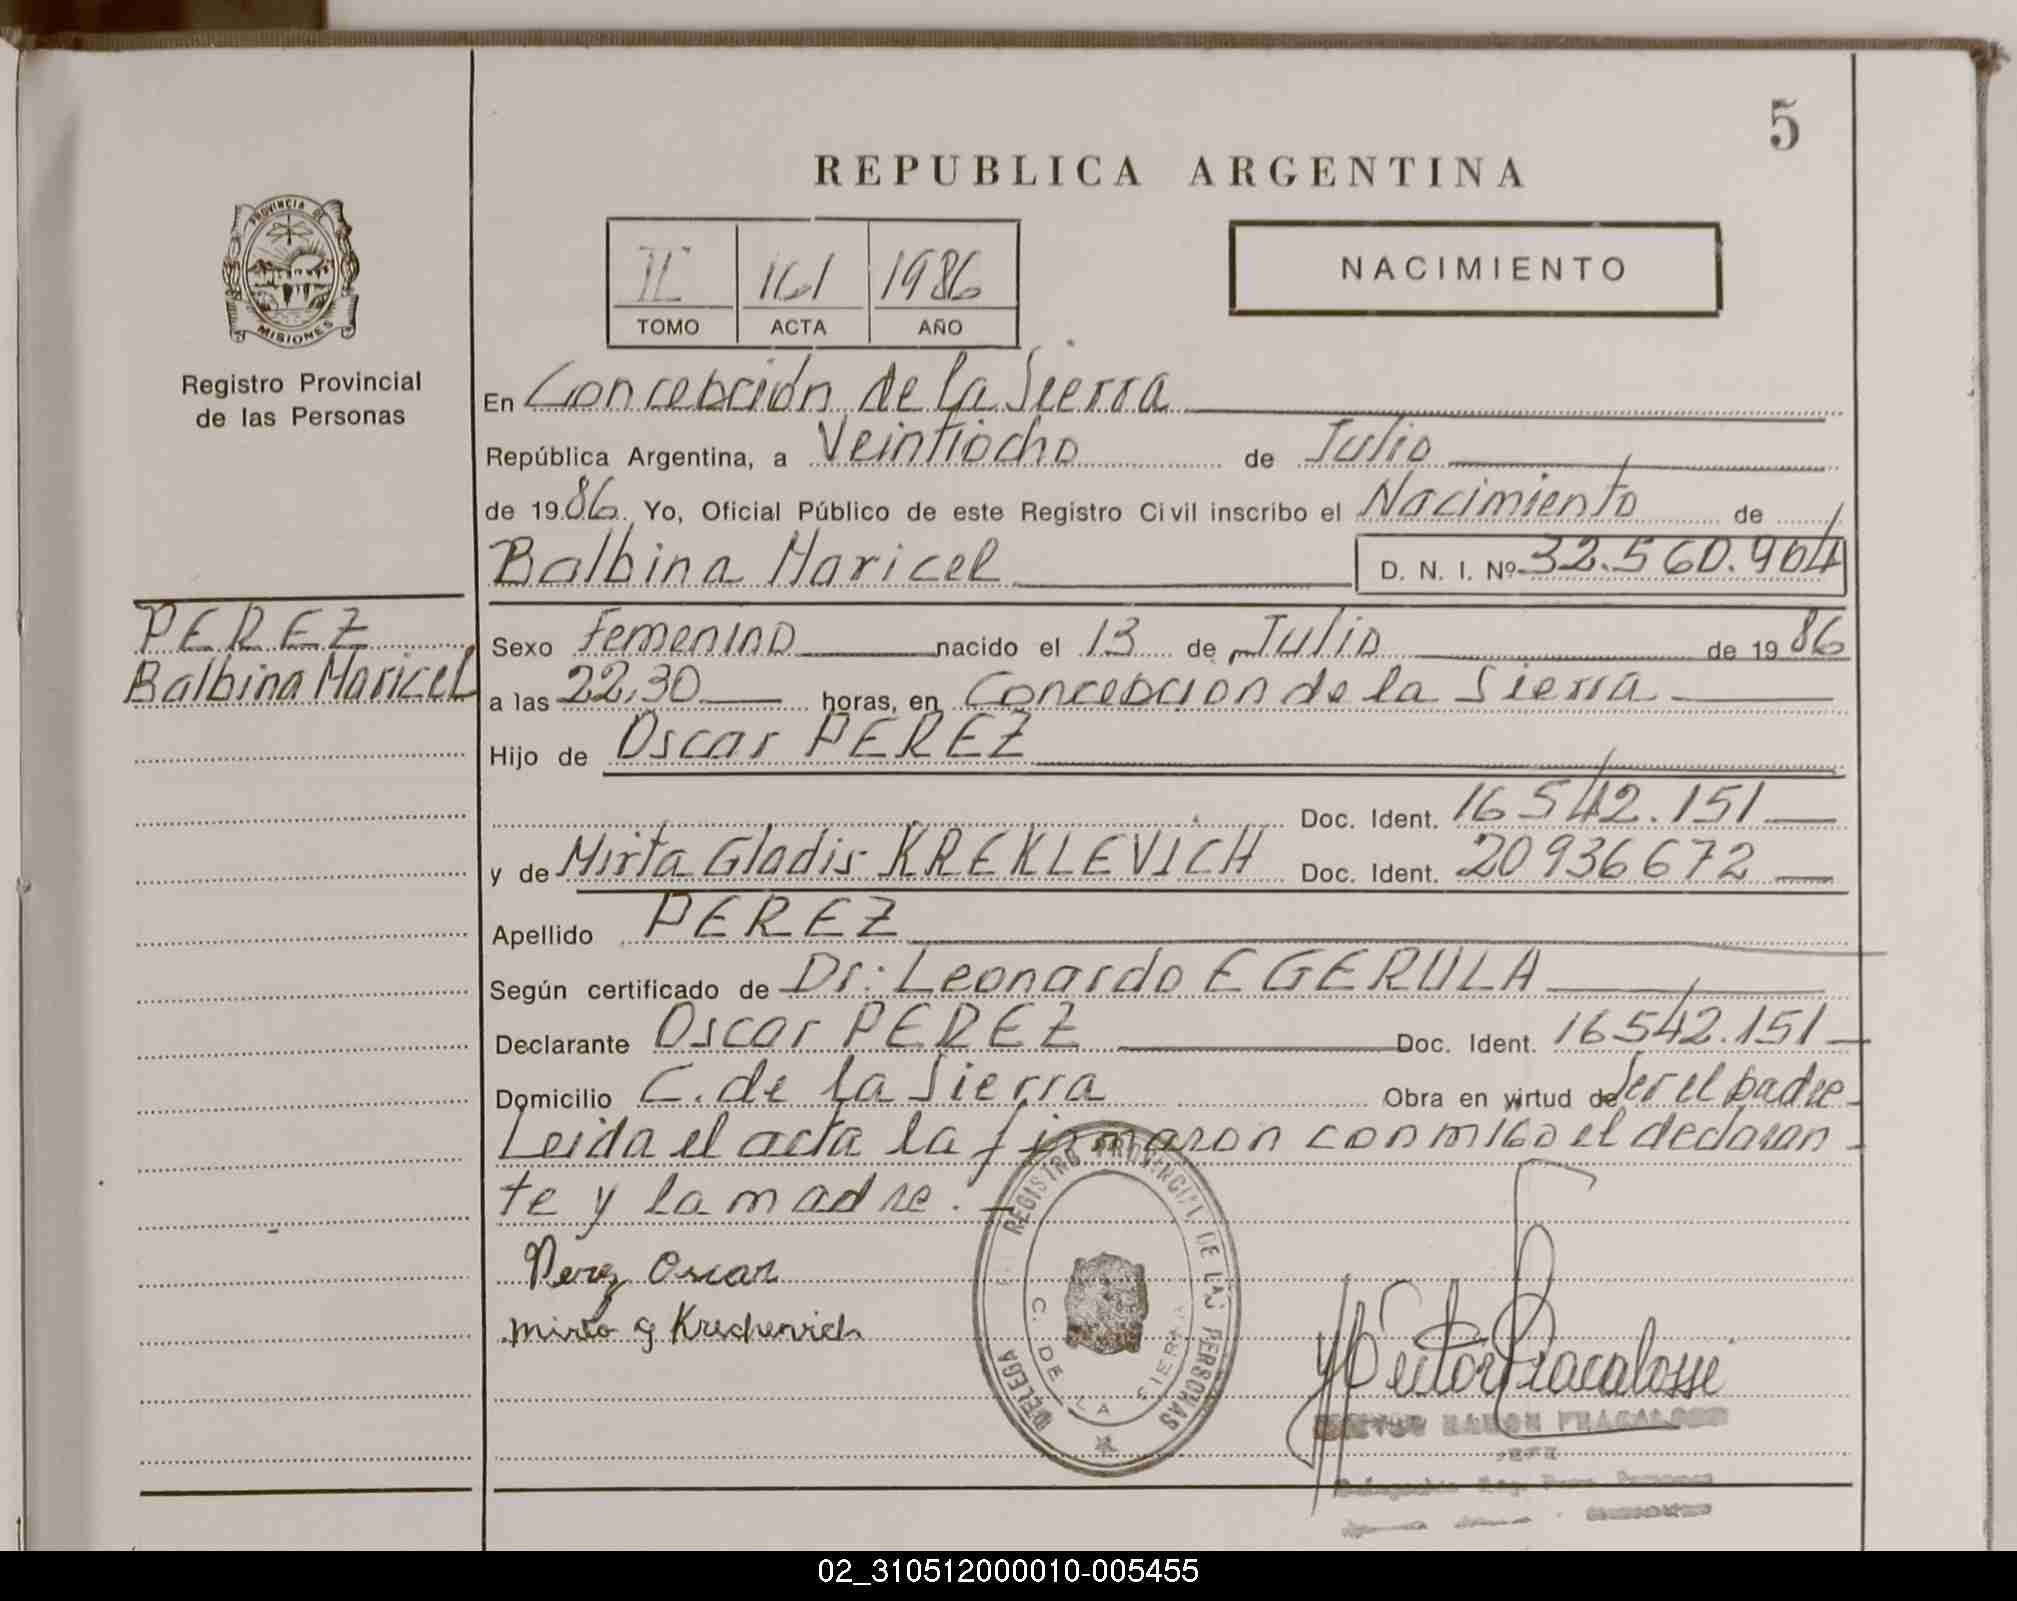 5
REPUBLICA ARGENTINA
PROVINCIA DE
MISIONES
Registro Provincial
de las Personas
II 161 1986
TOMO ACTA AÑO
NACIMIENTO
En Concepción de la Sierra
República Argentina, a Veintiocho de Julio
de 1986. Yo, Oficial Público de este Registro Civil inscribo el Nacimiento de
Balbina Maricel D. N. I. Nº 32.560.904
PEREZ
Balbina Maricel
Sexo Femenino nacido el 13 de Julio de 1986
a las 22,30 horas, en Concepcion de la Sierra
Hijo de Oscar PEREZ
Doc. Ident. 16542.151
y de Mirta Gladis KREKLEVICH Doc. Ident. 20936672
Apellido PEREZ
Según certificado de Dr: Leonardo E GERULA
Declarante Oscar PEREZ Doc. Ident. 16542.151
Domicilio C. de la Sierra Obra en virtud de Ser el padre
Leida el acta la firmaron conmigo el declaran-
te y la madre.
REGISTRO PROVINCIAL DE LAS PERSONAS
DELEGA
C. DE LA SIERRA
Perez Oscar
Mirta G
Hector Fracalossi
HECTOR RAMON FRACALOSSI
JEFE
02_310512000010-005455